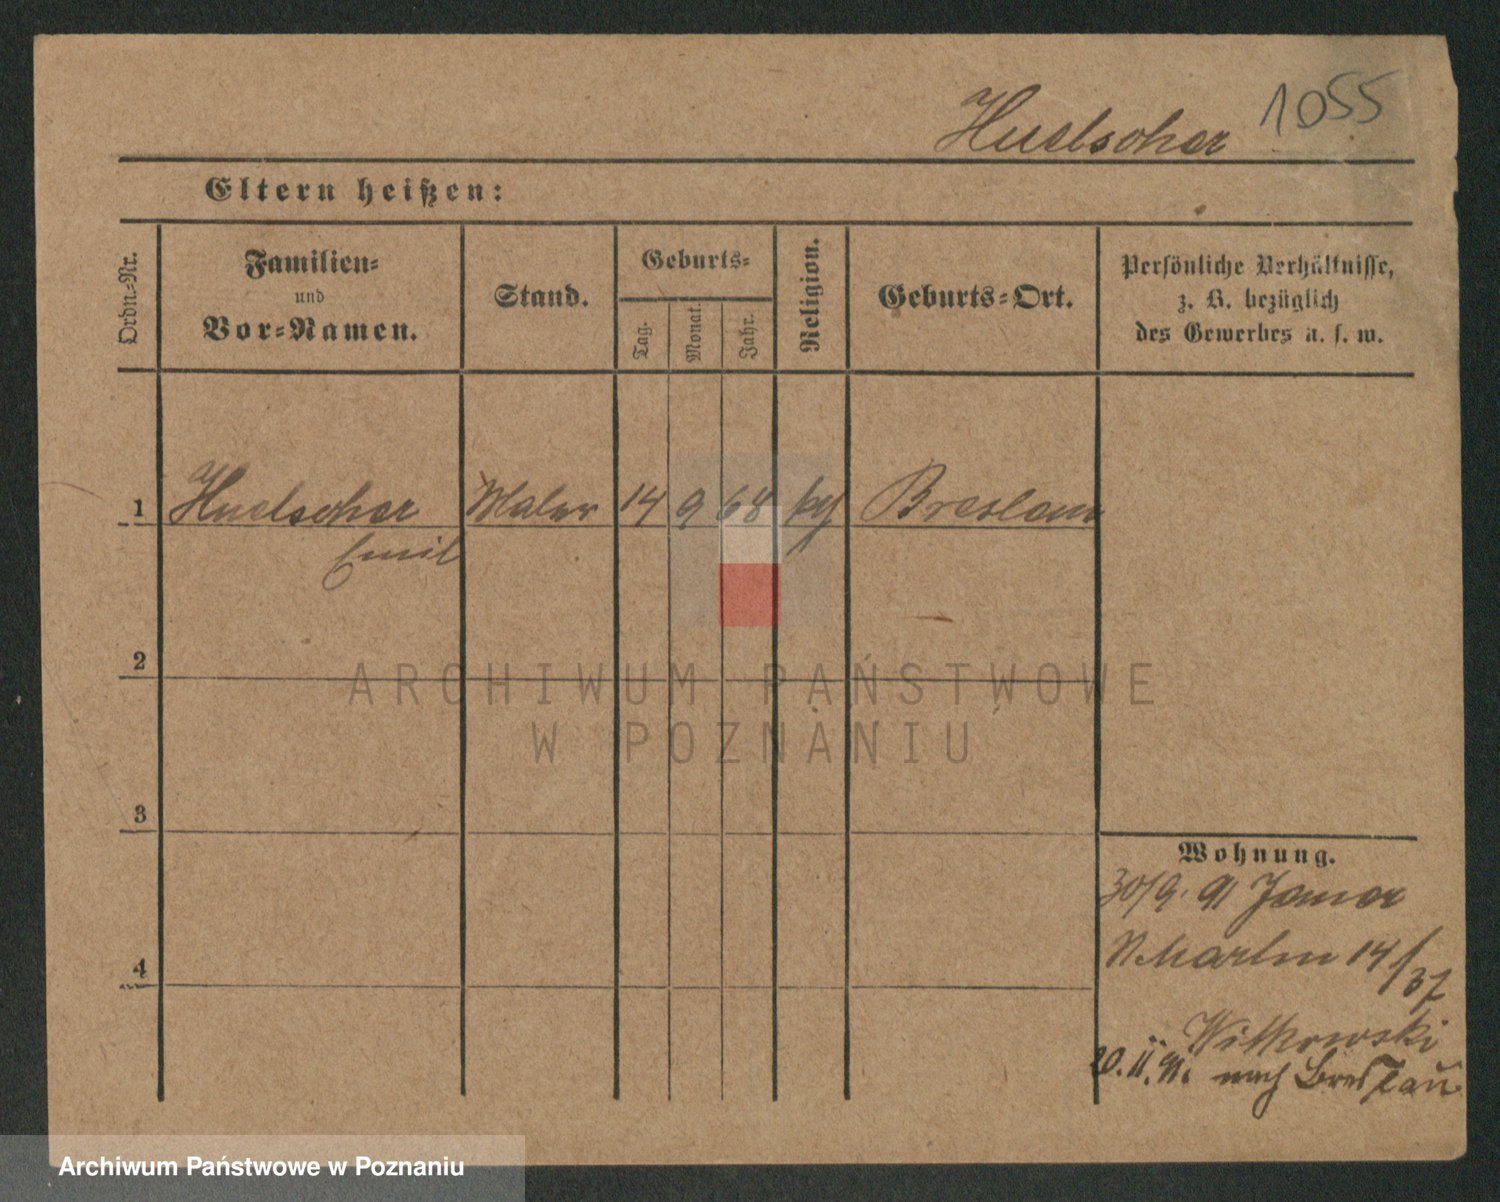 Huelscher 1055
Eltern heißen:
Ordn.-Nr.
Familien-
und
Vor-Namen.
Stand.
Geburts-
Tag.
Monat.
Jahr.
Religion.
Geburts-Ort.
Persönliche Verhältnisse,
z. B. bezüglich
des Gewerbes u. s. w.
1 Huelscher Maler 14 9 68 Breslau
Emil
2
3
4
Wohnung.
30/9. 91
St Martin 14/37
Witkowski
20. 11. 91. nach Breslau
ARCHIWUM PAŃSTWOWE
W POZNANIU
Archiwum Państwowe w Poznaniu